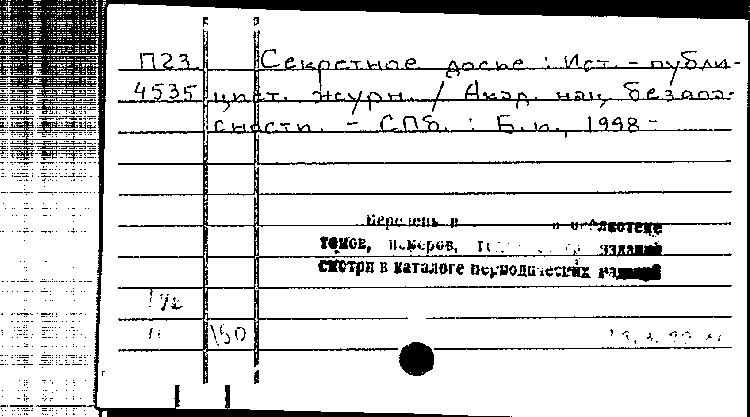 П23 Секретное досье : Ист. - публи-
4535 цист. журн. / Акад. нац. безопа-
сности. - СПб. : Б.и., 1998 -
Перечень в библиотеке
томов, номеров, изданий
смотри в каталоге периодических изданий
150